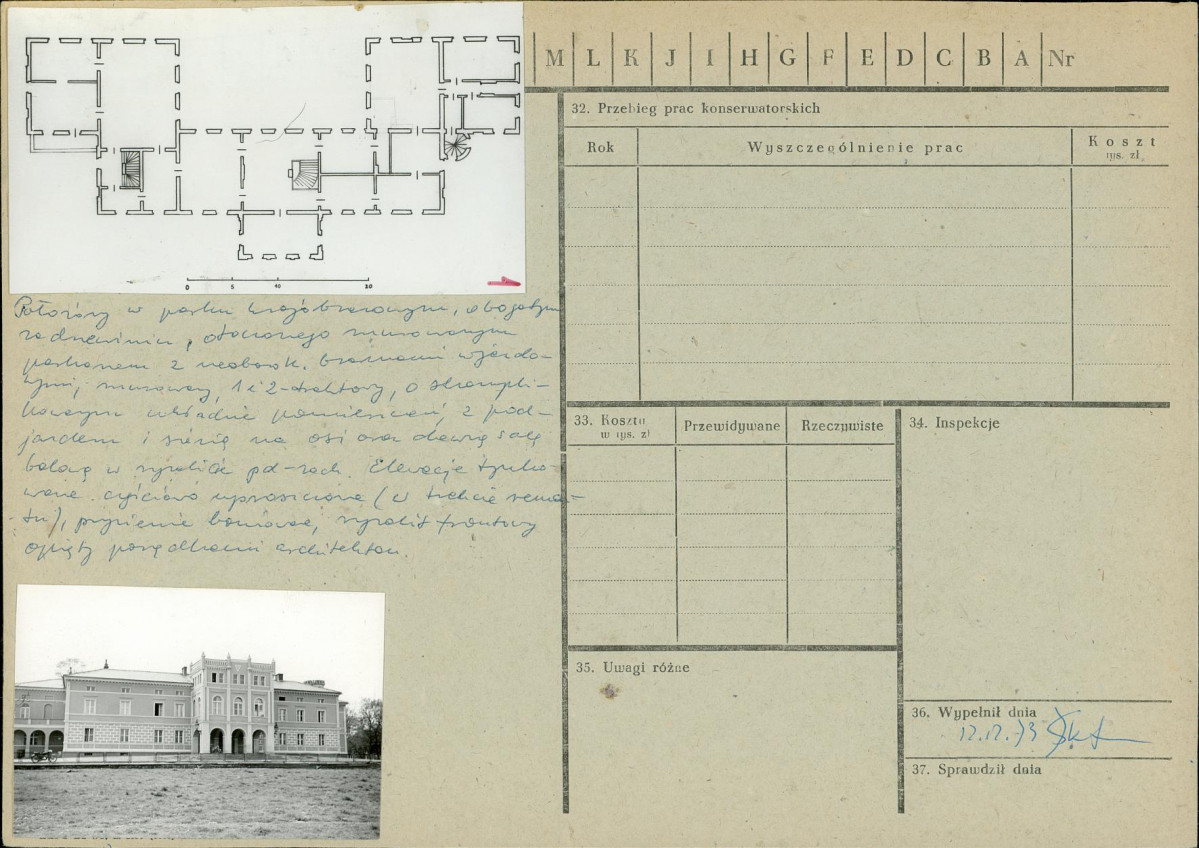 0 5 10 20
Położony w parku krajobrazowym, o bogatym
zadrzewieniu, otoczonego murowanym
parkanem z neobarok. bramami wjazdo-
wymi, murowany, 1 i 2-traktowy, o skompli-
kowanym układzie pomieszczeń, z pod-
jazdem i sienią na osi oraz dawną salą
balową w ryzalicie pd-zach. Elewacje tynko-
wane częściowo uproszczone (w trakcie remon-
tu), przyziemie boniowane, ryzalit frontowy
opięty porządkami architekton.
M L K J I H G F E D C B A Nr
32. Przebieg prac konserwatorskich
Rok Wyszczególnienie prac Koszt
tys. zł
33. Koszta
w tys. zł
Przewidywane Rzeczywiste
34. Inspekcje
35. Uwagi różne
36. Wypełnił dnia
12.12.73
37. Sprawdził dnia